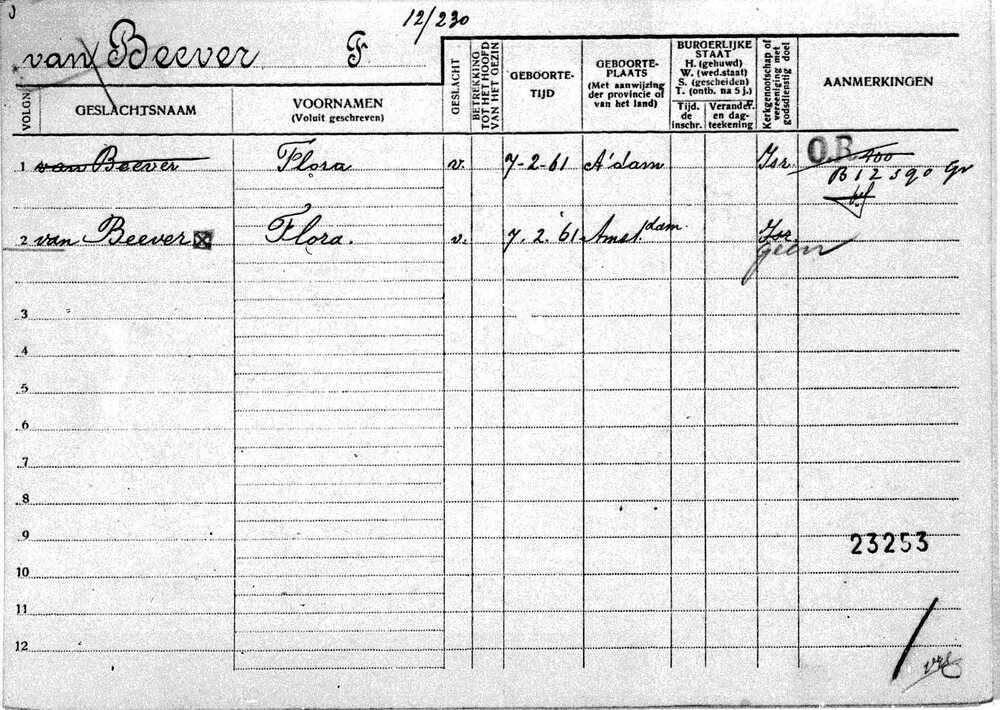 12/230
van Beever F
VOLGN.
GESLACHTSNAAM
VOORNAMEN
(Voluit geschreven)
GESLACHT
BETREKKING TOT HET HOOFD VAN HET GEZIN
GEBOORTE-
TIJD
GEBOORTE-
PLAATS
(Met aanwijzing
der provincie of
van het land)
BURGERLIJKE
STAAT
H. (gehuwd)
W. (wed.staat)
S. (gescheiden)
T. (ontb. na 5 j.)
Tijd.
de
inschr.
Verander.
en dag-
teekening
Kerkgenootschap of
vereeniging met
godsdienstig doel
AANMERKINGEN
1 van Beever Flora v. 7-2-61 A'dam Isr. O.B. 400
B 12390
2 van Beever Flora. v. 7.2.'61 Amst.dam. Isr.
geen
3
4
5
6
7
8
9
23253
10
11
12